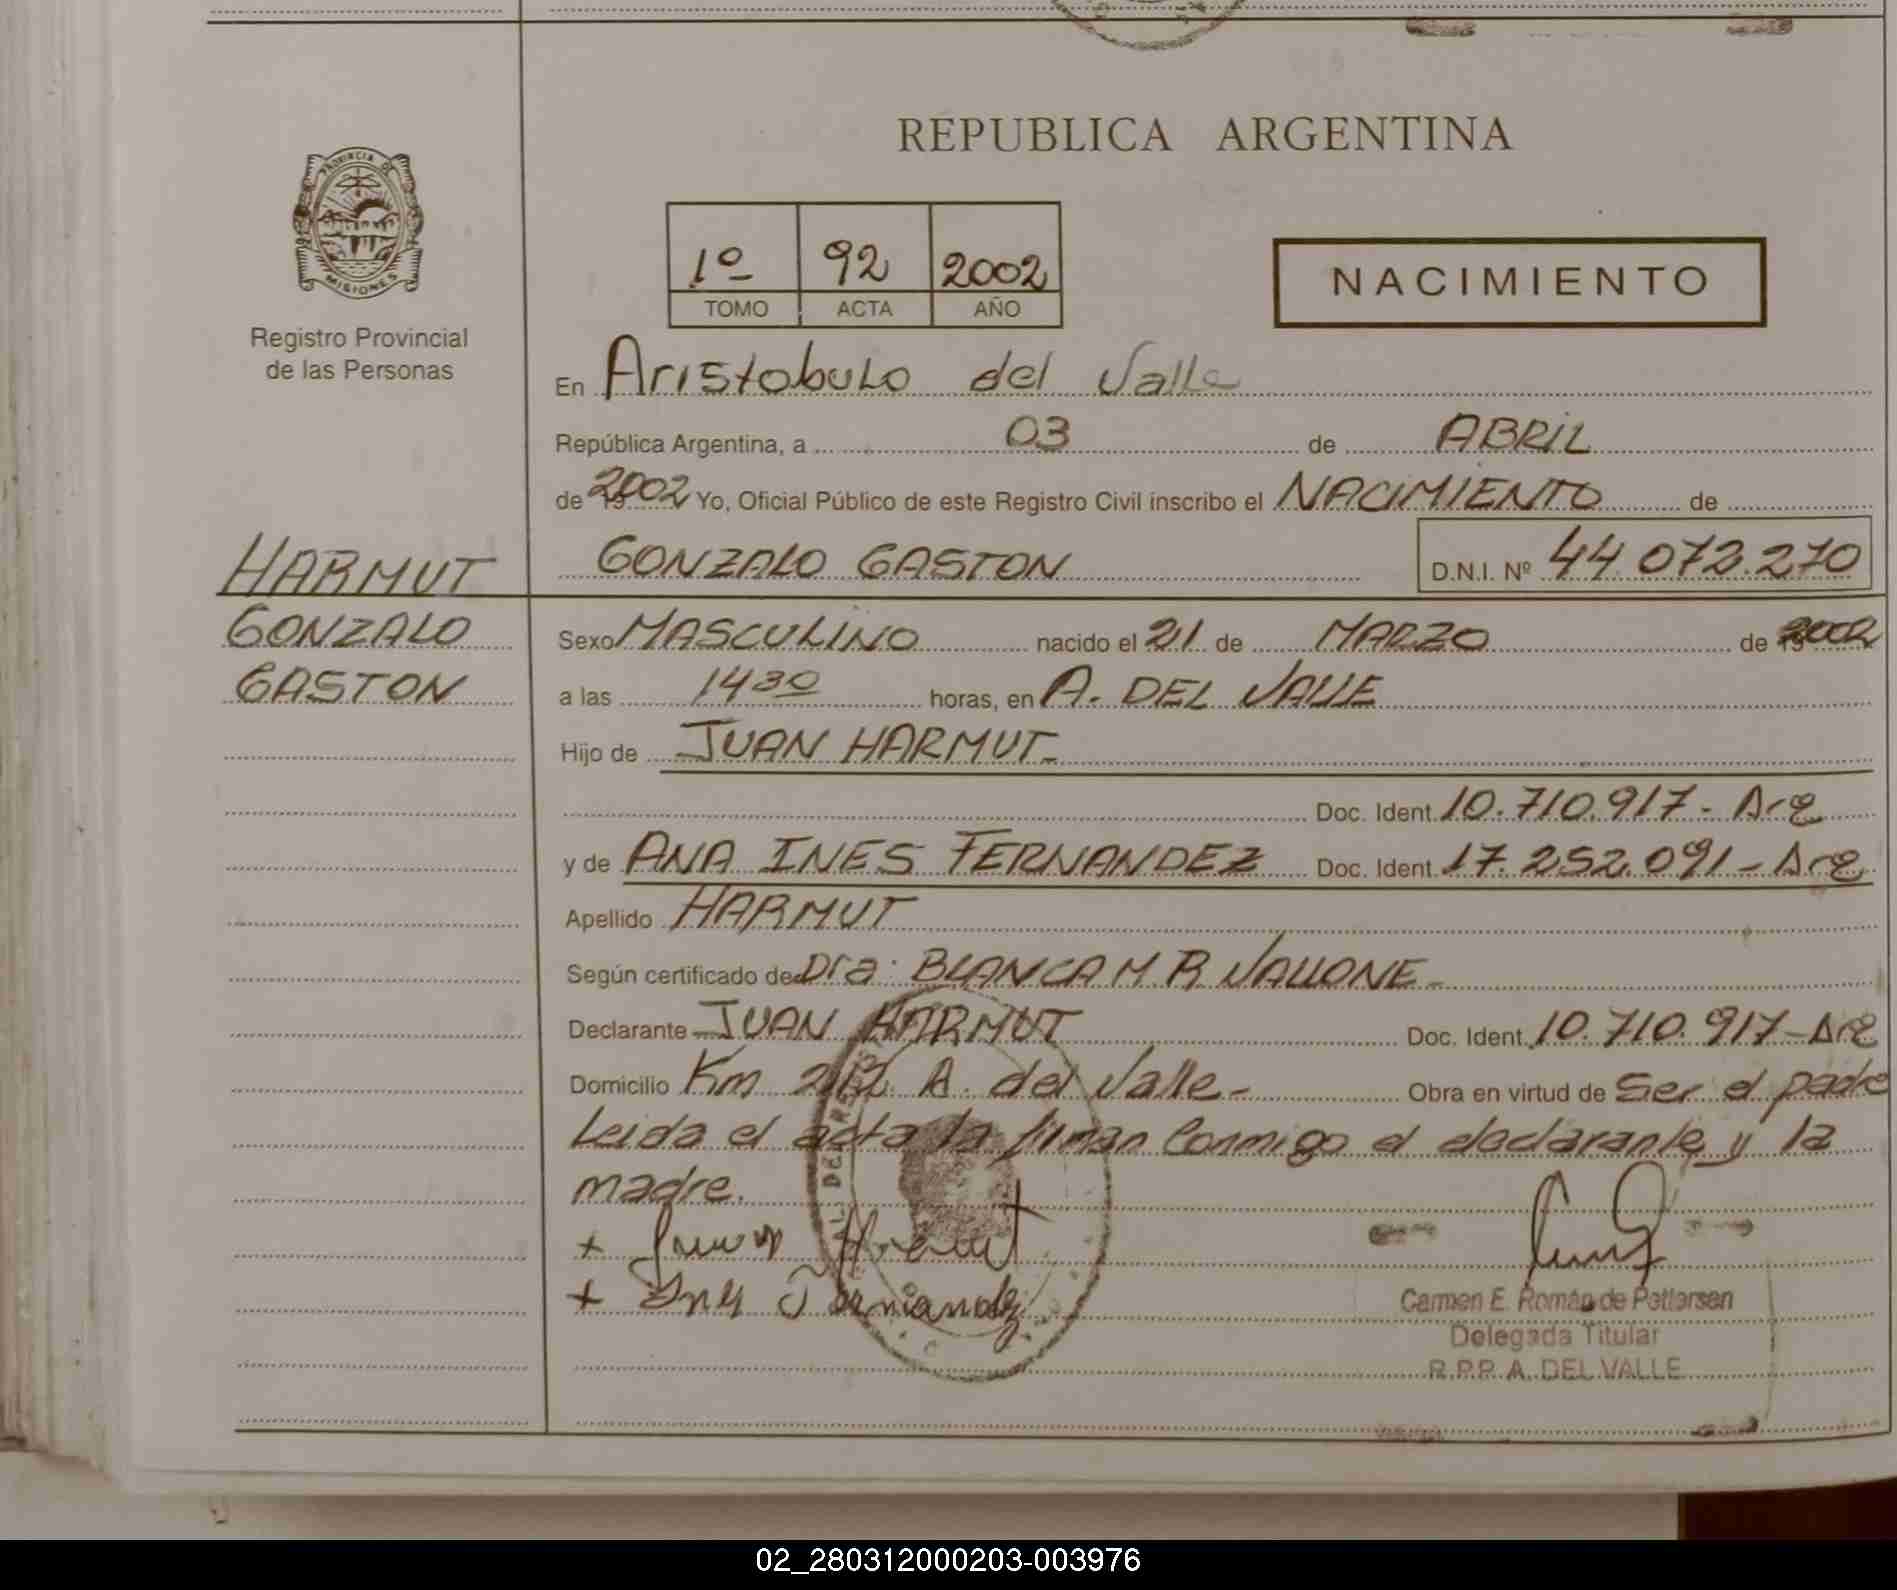 REPUBLICA ARGENTINA
PROVINCIA DE MISIONES
Registro Provincial
de las Personas
1º 92 2002
TOMO ACTA AÑO
NACIMIENTO
En Aristobulo del Valle
República Argentina, a 03 de ABRIL
de 2002 Yo, Oficial Público de este Registro Civil inscribo el NACIMIENTO de
HARMUT GONZALO GASTON D.N.I. Nº 44 072.270
GONZALO Sexo MASCULINO nacido el 21 de MARZO de 2002
GASTON a las 14 30 horas, en A. DEL VALLE
Hijo de JUAN HARMUT
Doc. Ident. 10.710.917- Arg
y de ANA INES FERNANDEZ Doc. Ident. 17.252.091- Arg
Apellido HARMUT
Según certificado de Dra: BLANCA M. R VALLONE
Declarante JUAN HARMUT Doc. Ident. 10.710.917- Arg
Domicilio Km 212 A. del Valle- Obra en virtud de Ser el padre
Leida el acta la firman Conmigo el declarante y la
madre.
Carmen E. Román de Pettersen
Delegada Titular
R.P.P. A. DEL VALLE
02_280312000203-003976